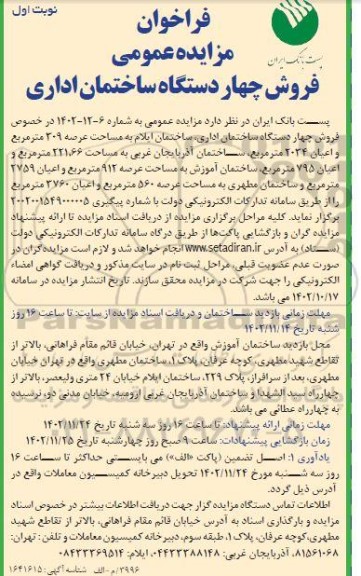 نوبت اول
فراخوان
مزایده عمومی
پست بانک ایران
فروش چهار دستگاه ساختمان اداری
پست بانک ایران در نظر دارد مزایده عمومی به شماره ۶-۱۲-۱۴۰۲ در خصوص
فروش چهار دستگاه ساختمان اداری، ساختمان ایلام به مساحت عرصه ۳۰۹ مترمربع
و اعیان ۲۰۳۴ مترمربع، ساختمان آذربایجان غربی به مساحت ۲۲۱،۶۶ مترمربع و
اعیان ۷۹۵ مترمربع، ساختمان آموزش به مساحت عرصه ۹۱۲ مترمربع و اعیان ۲۷۵۹
مترمربع و ساختمان مطهری به مساحت عرصه ۵۶۰ مترمربع و اعیان ۲۷۶۰ مترمربع
را از طریق سامانه تدارکات الکترونیکی دولت با شماره پیگیری
برگزار نماید. کلیه مراحل برگزاری مزایده از دریافت اسناد مزایده تا ارائه پیشنهاد
مزایده گران و بازگشایی پاکت‌ها از طریق درگاه سامانه تدارکات الکترونیکی دولت
(ستاد) به آدرس www.setadiran.ir انجام خواهد شد و لازم است مزایده‌گران در
صورت عدم عضویت قبلی، مراحل ثبت نام در سایت مذکور و دریافت گواهی امضاء
الکترونیکی را جهت شرکت در مزایده محقق سازند. تاریخ انتشار مزایده در سامانه
۱۴۰۲/۱۰/۱۷ می باشد.
مهلت زمانی بازدید ساختمان و دریافت اسناد مزایده از سایت: تا ساعت ۱۶ روز
شنبه تاریخ ۱۴۰۲/۱۱/۱۴
محل بازدید ساختمان آموزش واقع در تهران، خیابان قائم مقام فراهانی، بالاتر از
تقاطع شهید مطهری، کوچه عرفان، پلاک ۱، ساختمان مطهری واقع در تهران خیابان
مطهری، بعد از سرافراز، پلاک ۲۲۹، ساختمان ایلام خیابان ۲۴ متری ولیعصر، بالاتر از
چهارراه سید الشهدا و ساختمان آذربایجان غربی ارومیه، خیابان مدنی دو، نرسیده
به چهارراه عطائی می باشد.
مهلت زمانی ارائه پیشنهاد: تا ساعت ۱۶ روز سه شنبه تاریخ ۱۴۰۲/۱۱/۲۴
زمان بازگشایی پیشنهادات: ساعت ۹ صبح روز چهارشنبه تاریخ ۱۴۰۲/۱۱/۲۵
یادآوری ۱: اصل تضمین (پاکت «الف») می بایستی حداکثر تا ساعت ۱۶
روز سه شنبه مورخ ۱۴۰۲/۱۱/۲۴ تحویل دبیرخانه کمیسیون معاملات واقع در
آدرس ذیل گردد.
اطلاعات تماس دستگاه مزایده گزار جهت دریافت اطلاعات بیشتر در خصوص اسناد
مزایده و بارگذاری اسناد به آدرس خیابان قائم مقام فراهانی، بالاتر از تقاطع شهید
مطهری،کوچه عرفان، پلاک ۱، طبقه سوم، دبیرخانه کمیسیون معاملات و تلفن : تهران:
۸۱۵۶۱۰۶۸، آذربایجان غربی: ۰۴۴۳۳۳۸۸۱۴۸، ایلام: ۰۸۴۳۳۳۶۹۵۱۴
۳۹۹۶/م-الف شناسه آگهی: ۱۶۴۱۶۱۵